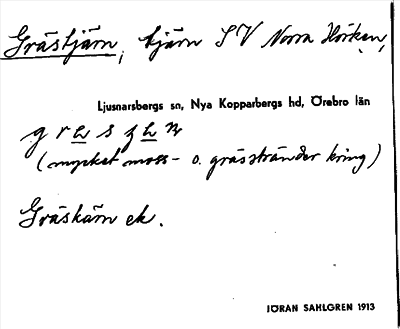 Grästjärn, tjärn SV Norra Hörken,
Ljusnarsbergs sn, Nya Kopparbergs hd, Örebro län
(mycket moss- o. grässtränder kring)
Gräskärn ek.
JÖRAN SAHLGREN 1913